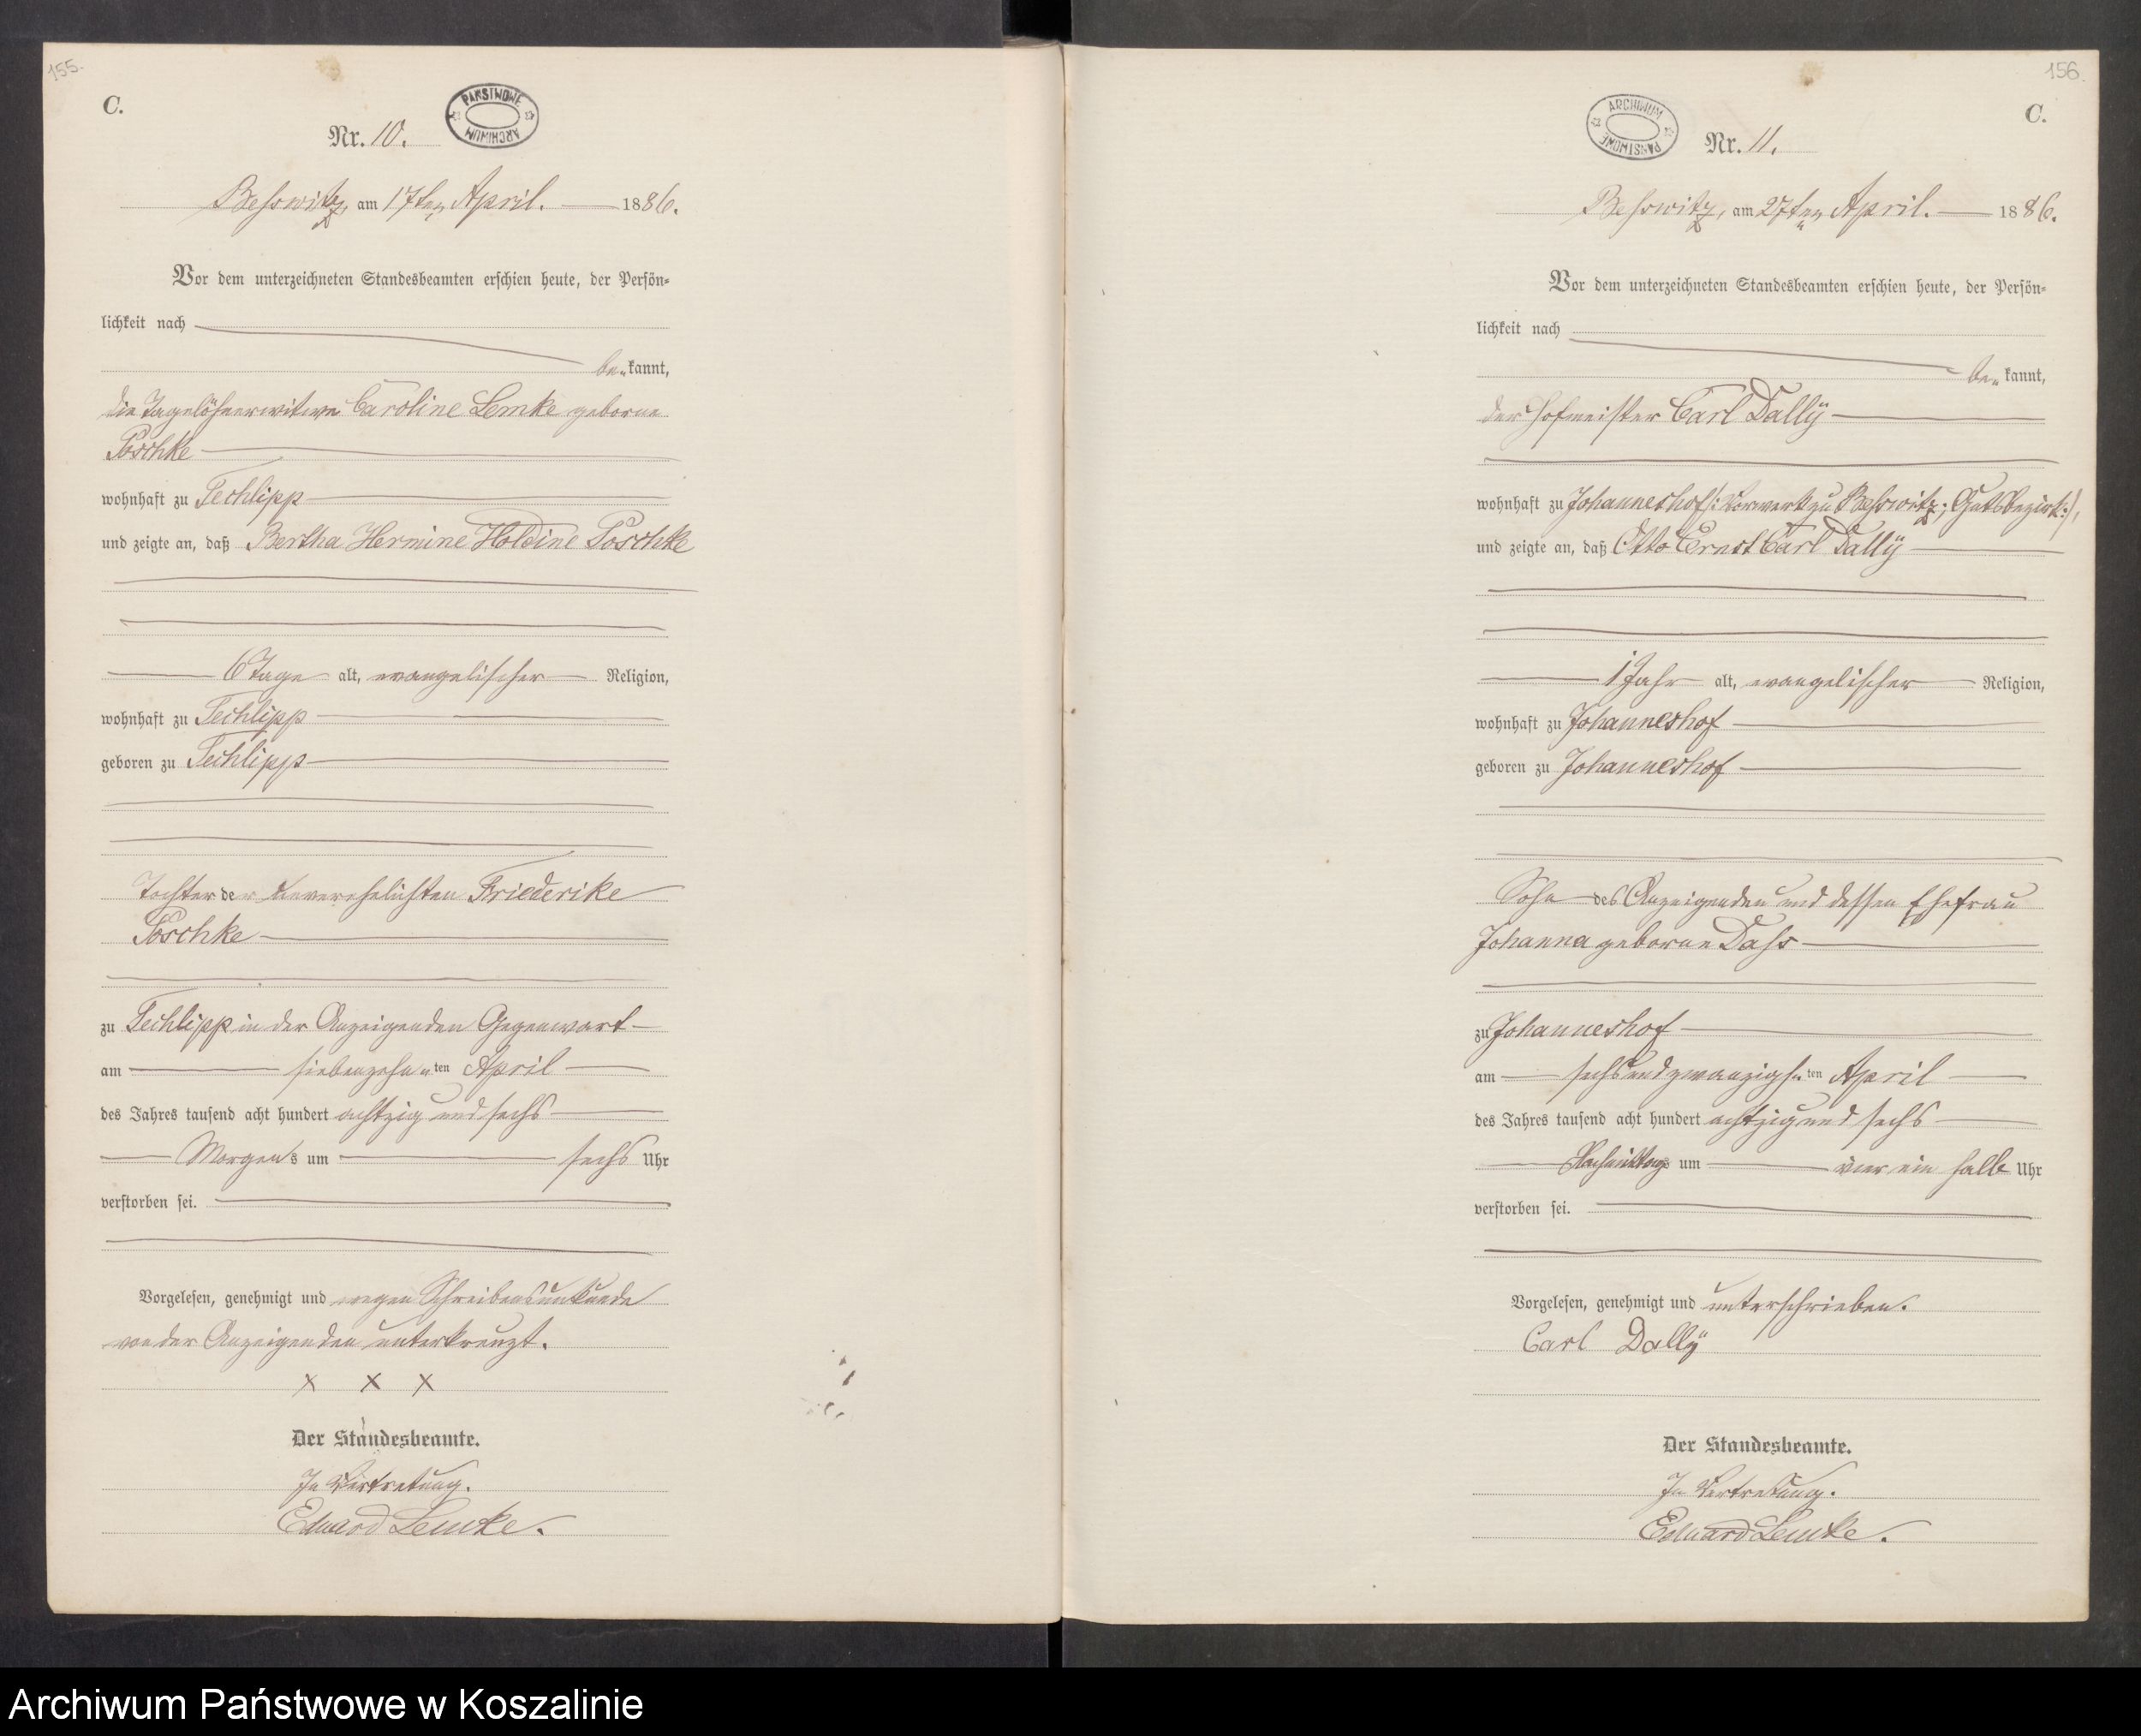 155.
C.
PAŃSTWOWE ARCHIWUM
Nr. 10.
Beßwitz, am 17ten April. 1886.
Vor dem unterzeichneten Standesbeamten erschien heute, der Persön-
lichkeit nach
be-kannt,
die Tagelöhnerwitwe Caroline Lemke geborne
Poschke
wohnhaft zu Techlipp
und zeigte an, daß Bertha Hermine Holdine Poschke
6 Tage alt, evangelischer Religion,
wohnhaft zu Techlipp
geboren zu Techlipp
Tochter der unverehelichten Friederike
Poschke
zu Techlipp in der Anzeigenden Gegenwart
am siebenzehnten April
des Jahres tausend acht hundert achtzig und sechs
Morgens um sechs Uhr
verstorben sei.
Vorgelesen, genehmigt und wegen Schreibensunkunde
von der Anzeigenden unterkreuzt.
x x x
Der Standesbeamte.
In Vertretung.
Eduard Lemke.
156.
C.
ARCHIWUM PAŃSTWOWE
Nr. 11.
Beßwitz, am 27ten April. 1886.
Vor dem unterzeichneten Standesbeamten erschien heute, der Persön-
lichkeit nach
be-kannt,
der Hofmeister Carl Dallÿ
wohnhaft zu Johanneshof /: Vorwerk zu Beßwitz; Gutsbezirk :/,
und zeigte an, daß Otto Ernst Carl Dallÿ
1 Jahr alt, evangelischer Religion,
wohnhaft zu Johanneshof
geboren zu Johanneshof
Sohn des Anzeigenden und dessen Ehefrau
Johanna geborne Daß
zu Johanneshof
am sechsundzwanzigsten April
des Jahres tausend acht hundert achtzig und sechs
Nachmittags um vier ein halb Uhr
verstorben sei.
Vorgelesen, genehmigt und unterschrieben.
Carl Dallÿ
Der Standesbeamte.
In Vertretung.
Eduard Lemke.
Archiwum Państwowe w Koszalinie